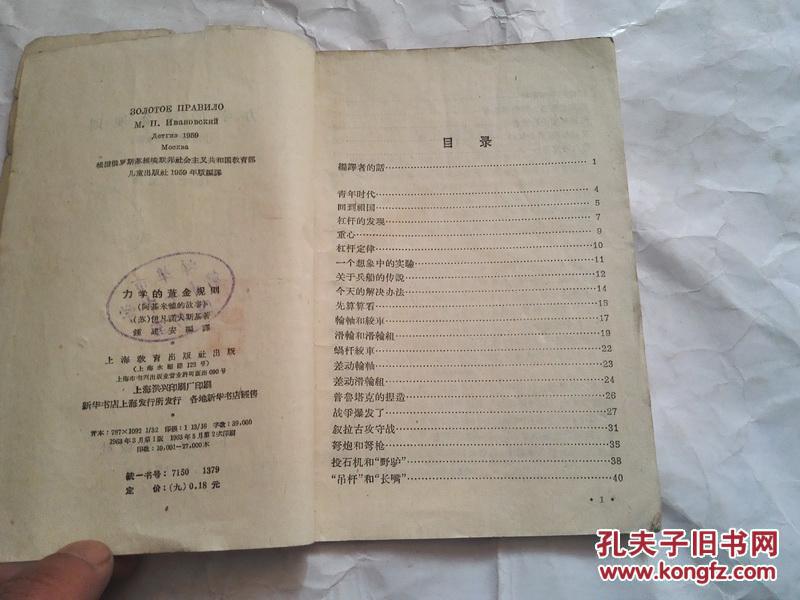 ЗОЛОТОЕ ПРАВИЛО
М. П. Ивановский
Детгиз 1959
Москва
根据俄罗斯苏維埃联邦社会主义共和国教育部
儿童出版社1959年版編譯
力学的黄金规则
(阿基米德的故事)
(苏)伊凡諾夫斯基著
鍾建安編譯
上海敎育出版社出版
(上海永福路123号)
上海市书刊出版业营业許可証出090号
上海洪兴印刷厂印刷
新华书店上海发行所发行 各地新华书店經售
开本:787×1092 1/32 印张:1 13/16 字数:39,000
1963年3月第1版 1963年5月第2次印刷
印数:10,001-27,000本
統一书号:7150·1379
定 价:(九)0.18元
目 录
編譯者的話 1
青年时代 4
回到祖国 5
杠杆的发現 7
重心 9
杠杆定律 10
一个想象中的实驗 11
关于兵船的传說 12
今天的解决办法 14
先算算看 15
輪軸和絞車 17
滑輪和滑輪組 19
蝸杆絞車 22
差动輪軸 23
差动滑輪組 24
普魯塔克的捏造 26
战爭爆发了 27
叙拉古攻守战 31
弩炮和弩枪 35
投石机和“野驴” 38
“吊杆”和“长嘴” 40
·1·
孔夫子旧书网
www.kongfz.com